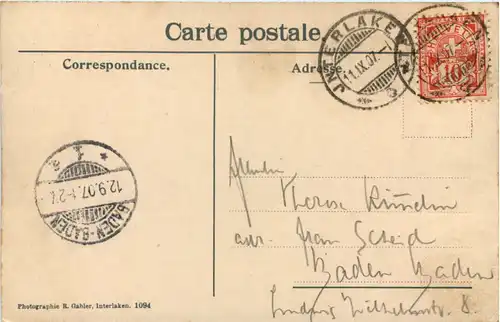 Carte postale.
Correspondance.
Adresse
INTERLAKEN
11.IX.07.
HELVETIA
10
12.9.07. 1-2N.
BADEN-BADEN
* 1 *
Therese
Frau Scheid
Baden Baden
Ludwig Wilhelmstr. 8.
Photographie R. Gabler, Interlaken. 1094